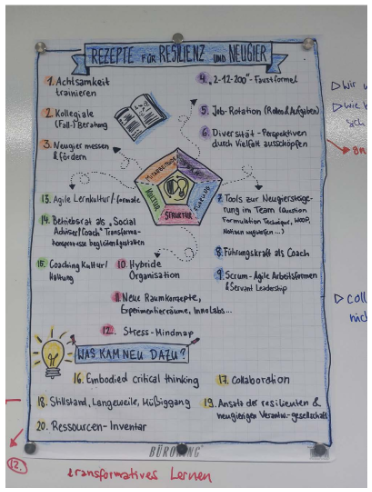 REZEPTE FÜR RESILIENZ UND NEUGIER
1. Achtsamkeit
trainieren
2. Kollegiale
(Fall-) Beratung
3. Neugier messen
& fördern
4. "2-12-200"-Faustformel
5. Job-Rotation (Rollen & Aufgaben)
6. Diversität - Perspektiven
durch Vielfalt ausschöpfen
KULTUR
STRUKTUR
13. Agile Lernkultur/-formate
14. Betriebsrat als "Social
Adviser/Coach" Transforma-
begleiten & gestalten
15. Coaching Kultur/
Haltung
7. Tools zur Neugiersteige-
rung im Team (Question
Formulation Technique, WOOP,
8. Führungskraft als Coach
9. Scrum - Agile Arbeitsformen
& Servant Leadership
10. Hybride
Organisation
11. Neue Raumkonzepte,
Experimentierräume, InnoLabs...
12. Stress-Mindmap
WAS KAM NEU DAZU?
16. Embodied critical thinking
17. Collaboration
18. Stillstand, Langeweile, Müßiggang
19. Ansatz der resilienten &
neugierigen
20. Ressourcen-Inventar
12.
transformatives Lernen